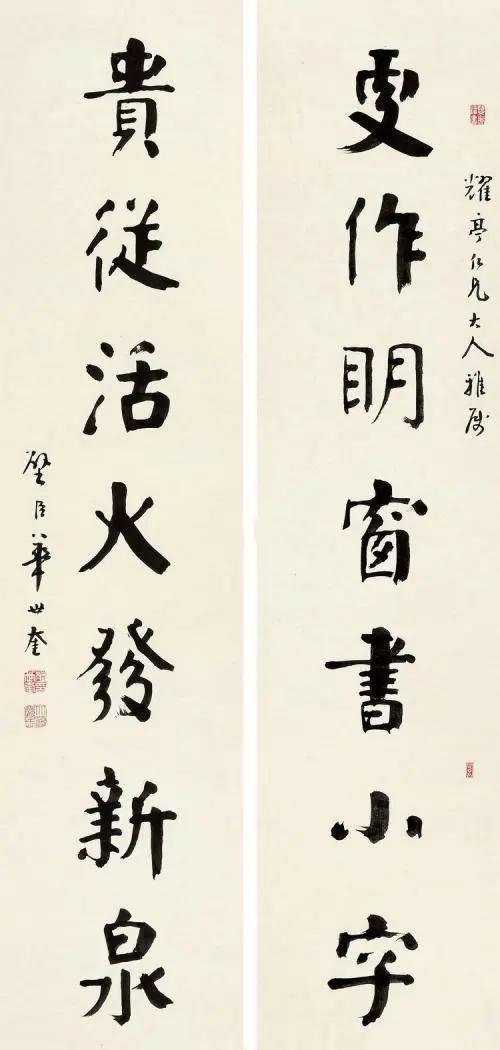 耀亭仁兄大人雅属
更作眀窗書小字
貴従活火發新泉
璧臣華世奎